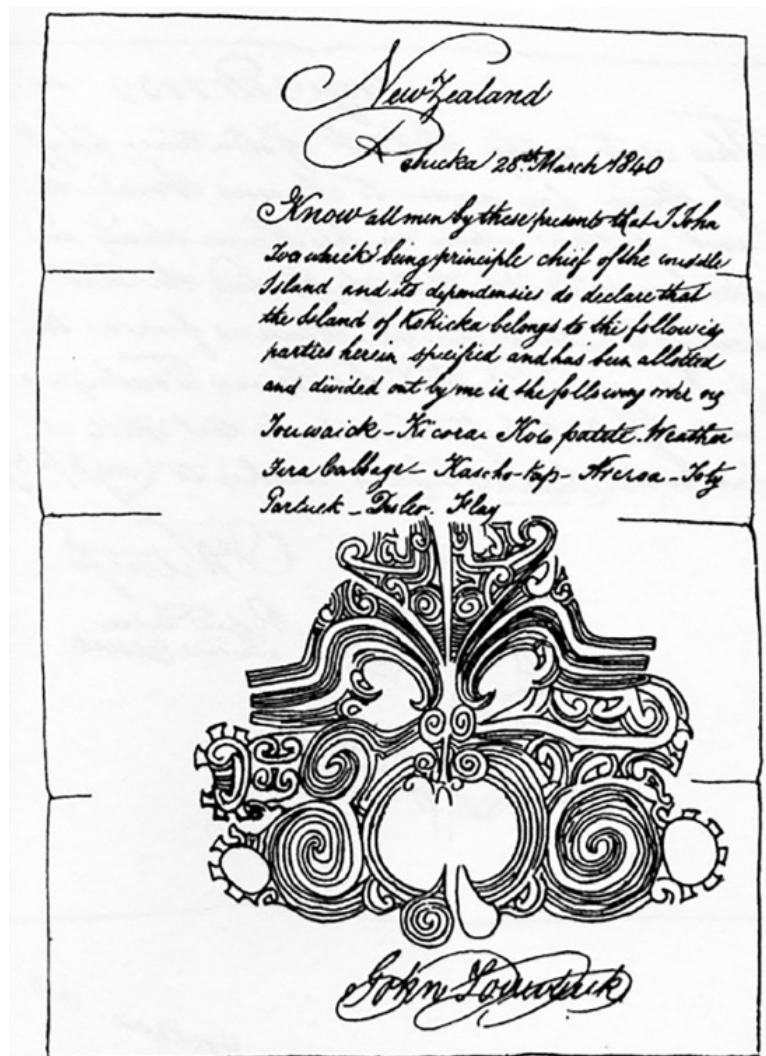 New Zealand
28th March 1840
Know all men by these presents that I John
Towwaick being principle chief of the middle
Island and its dependensies do declare that
the Island of Kohicka belongs to the following
parties herein specified and has been allotted
and divided out by me in the following order viz
Touwaick - Kicora - Kow patete - Weather
Tera Cabbage - Kascho-tap - Areroa - Toty
Partuck - Tesler - Flay
John Touwaick